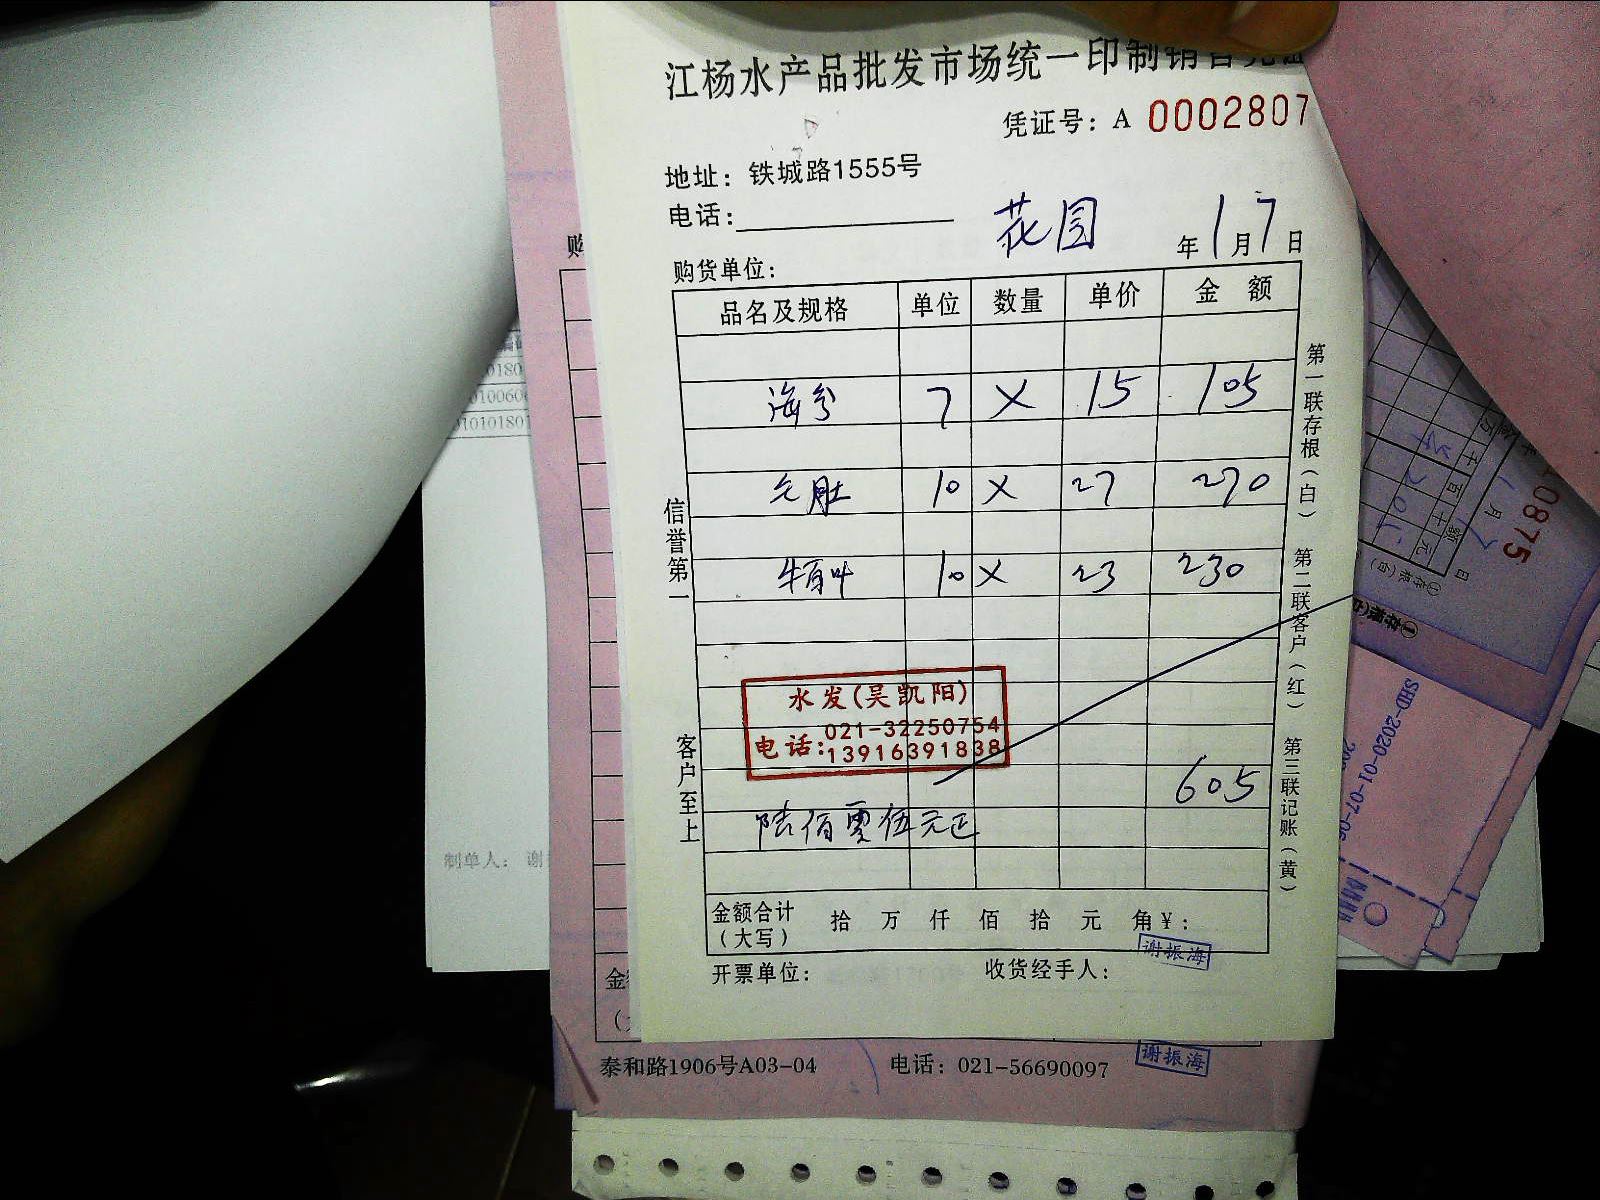 江杨水产品批发市场统一印制销售凭证
凭证号: A 0002807
地址: 铁城路1555号
电话:
花园 年1月7日
购货单位:
品名及规格 单位 数量 单价 金 额
海参 7 X 15 105
毛肚 10 X 27 270
牛百叶 10 X 23 230
水发(吴凯阳)
电话: 021-32250754
13916391838
605
陆佰零伍元正
金额合计(大写) 拾 万 仟 佰 拾 元 角 ¥:
开票单位: 收货经手人:
谢振海
信誉第一
客户至上
第一联存根(白) 第二联客户(红) 第三联记账(黄)
泰和路1906号A03-04 电话: 021-56690097
谢振海
制单人: 谢
购
金
0180
010060
01010180
0875
SHD-2020-01-07-0